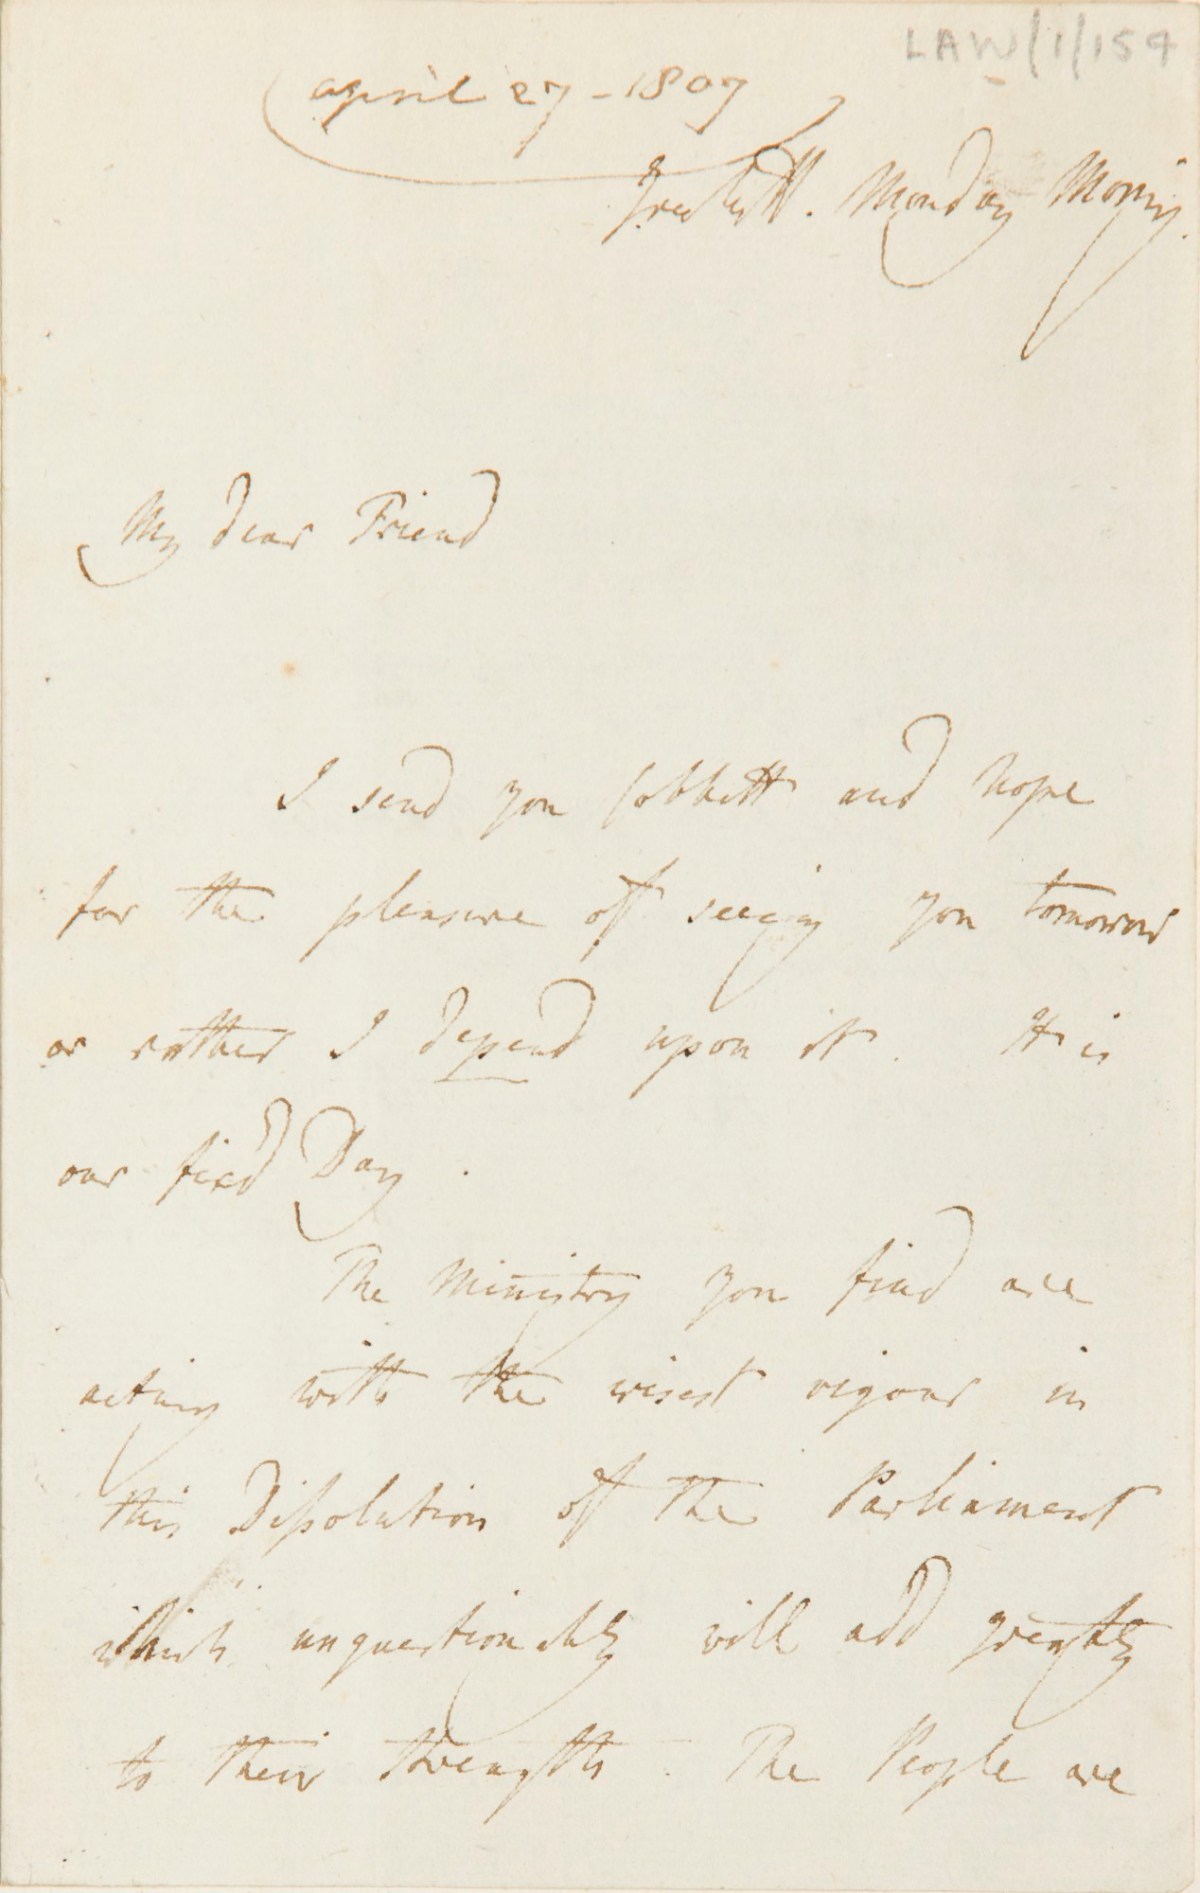 LAW/1/154
april 27-1807
Monday Morng.
My dear Friend
I send you Cobbett and hope
for the pleasure of seeing you tomorrow
or rather I depend upon it. It is
our fixd Day.
The Ministry you find are
acting with the wisest vigour in
this Dissolution of the Parliament
which unquestionably will add greatly
to their strength. The People are